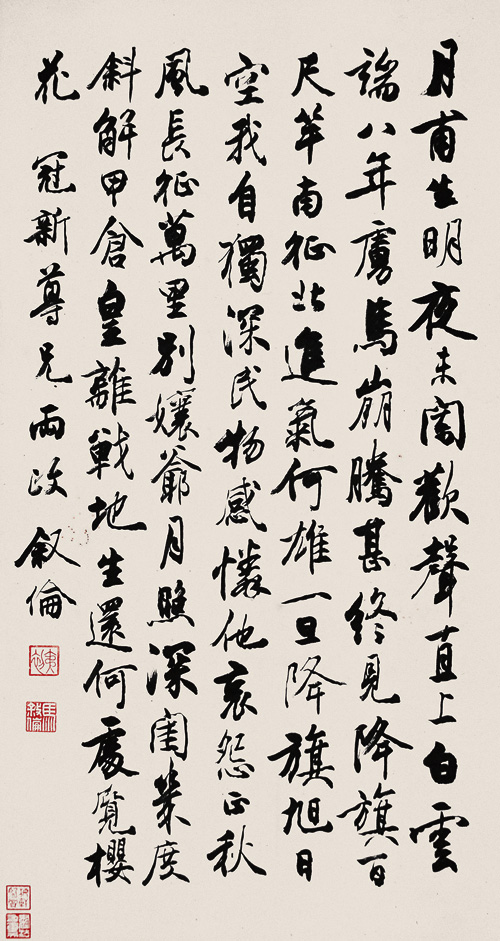 月甫生明夜未闌歡聲直上白雲
端八年虜馬崩騰甚終見降旗百
尺竿南征北進氣何雄一旦降旗旭日
空我自獨深民物感憐他哀怨正秋
風長征萬里別孃爺月照深閨幾度
斜解甲倉皇離戰地生還何處覽櫻
花 冠新尊兄兩政 叙倫
夷初
馬叙倫